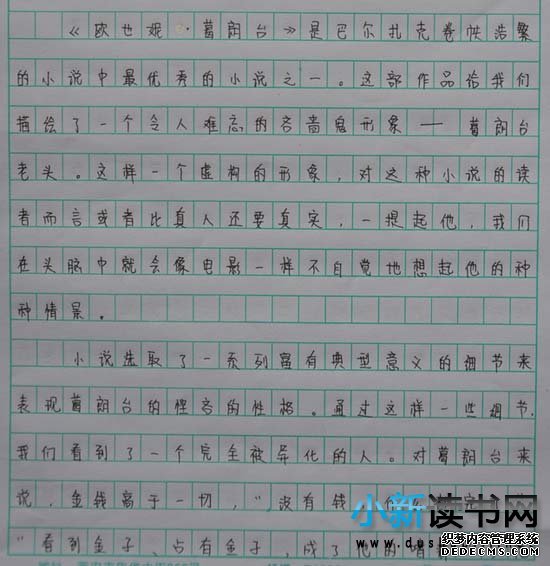 《欧也妮·葛朗台》是巴尔扎克卷帙浩繁
的小说中最优秀的小说之一。这部作品给我们
描绘了一个令人难忘的吝啬鬼形象——葛朗台
老头。这样一个虚构的形象，对这种小说的读
者而言或者比真人还要真实，一提起他，我们
在头脑中就会像电影一样不自觉地想起他的种
种情景。
小说选取了一系列富有典型意义的细节来
表现葛朗台的悭吝的性格。通过这样一些细节，
我们看到了一个完全被异化的人。对葛朗台来
说，金钱高于一切，"没有钱
"看到金子、占有金子，成了他的嗜
小新读书网
织梦内容管理系统